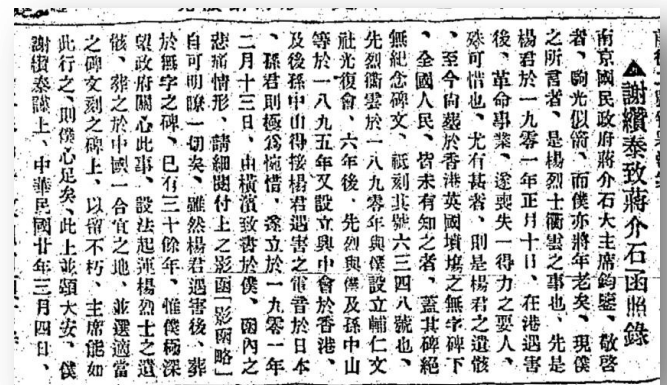 ▲謝纘泰致蔣介石函照錄
南京國民政府蔣介石大主席鈞鑒、敬啓
者、駒光似箭、而僕亦將年老矣、現僕
之所言者、是楊烈士衢雲之事也、先是
楊君於一九零一年正月十日、在港遇害
後、革命事業、遂喪失一得力之要人、
殊可惜也、尤有甚者、則是楊君之遺骸
、至今尚葬於香港英國墳塲之無字碑下
、全國人民、皆未有知之者、蓋其碑絕
無紀念碑文、祗刻其號六三四八號也、
先烈衢雲於一八九零年與僕設立輔仁文
社光復會、六年後、先烈與僕及孫中山
等於一八九五年又設立興中會於香港、
及後孫中山得接楊君遇害之電音於日本
、孫君則極爲惋惜、遂立於一九零一年
二月十三日、由橫濱致書於僕、函內之
悲痛情形、請細閱付上之影函「影函略」
自可明瞭一切矣、雖然楊君遇害後、葬
於無字之碑、已有三十餘年、惟僕極深
望政府關心此事、設法起運楊烈士之遺
骸、葬之於中國一合宜之地、並選適當
之碑文刻之碑上、以留不朽、主席能如
此行之、則僕心足矣、此上並頌大安、僕
謝纘泰謹上、中華民國廿年三月四日、